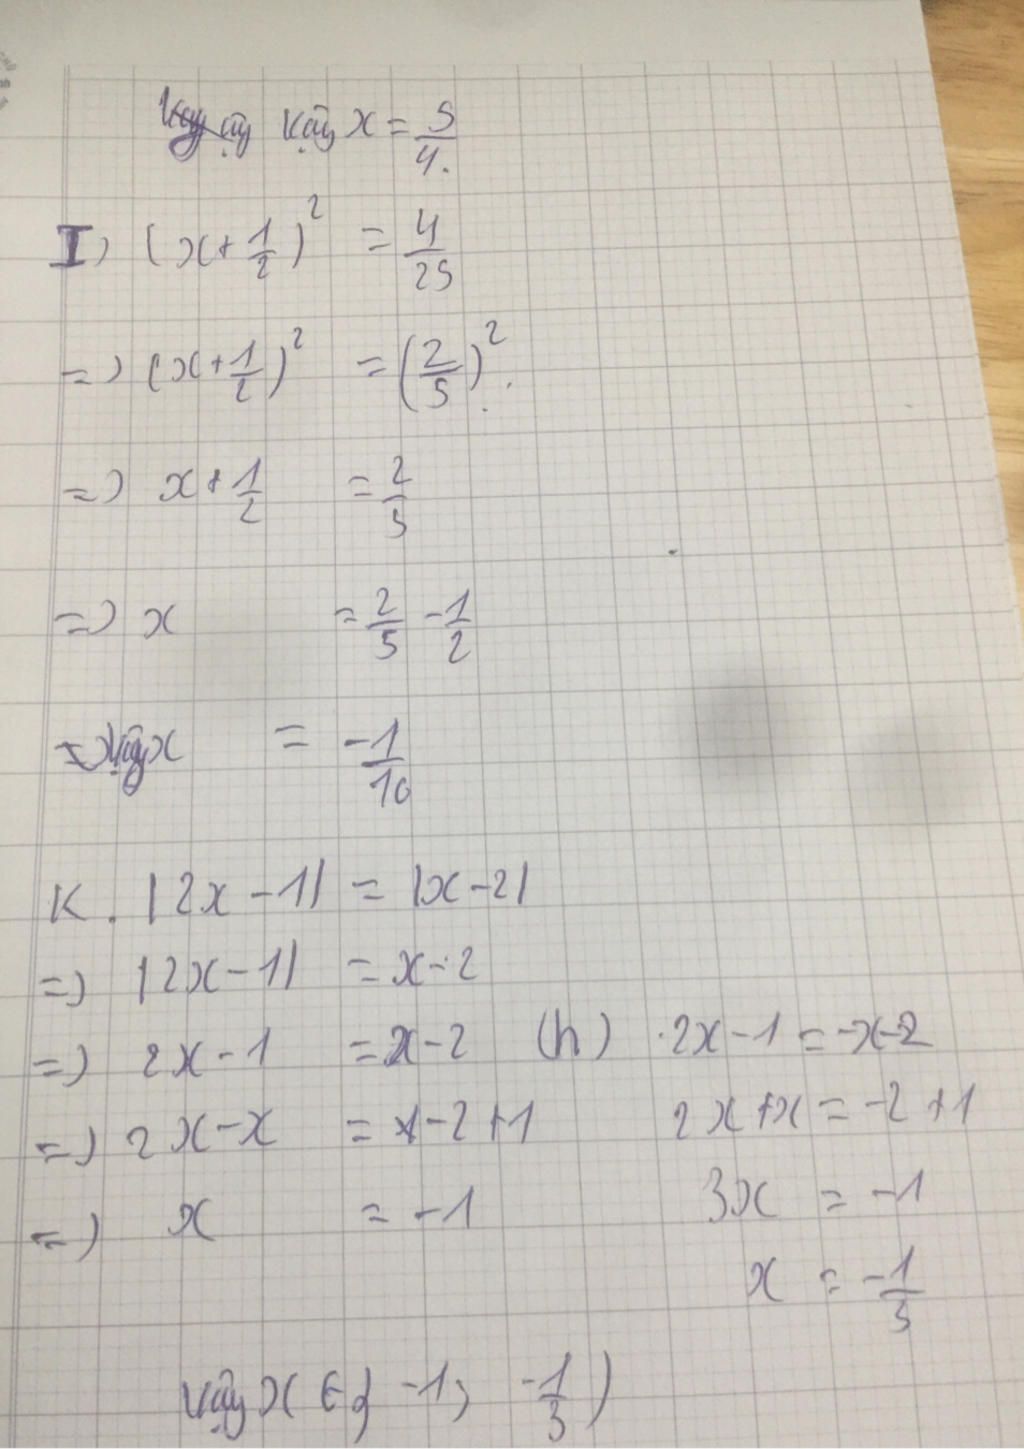 Vậy x = 5/4.
I) (x + 1/2)² = 4/25
=> (x + 1/2)² = (2/5)².
=> x + 1/2 = 2/5
=> x = 2/5 - 1/2
=> Vậy x = -1/10
K. |2x - 1| = |x - 2|
=> |2x - 1| = x - 2
=> 2x - 1 = x - 2 (h) 2x - 1 = -x - 2
=> 2x - x = -2 + 1 2x + x = -2 + 1
=> x = -1 3x = -1
x = -1/3
Vậy x ∈ { -1; -1/3 }